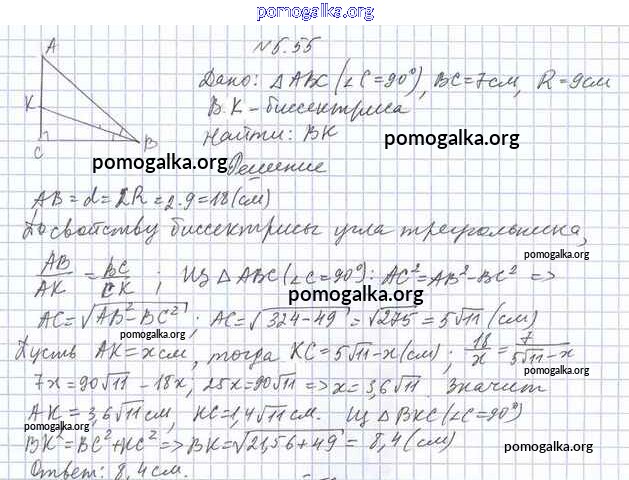 pomogalka.org
№ 5.55
A
Дано: △ABC (∠C=90°), BC=7см, R=9см
K
BK - биссектриса
C
B
Найти: BK
pomogalka.org
pomogalka.org
Решение
AB = d = 2R = 2·9 = 18 (см)
По свойству биссектрисы угла треугольника,
pomogalka.org
AB/AK = BC/CK ; Из △ABC (∠C=90°): AC² = AB² - BC² =>
pomogalka.org
AC = √AB² - BC² ; AC = √324 - 49 = √275 = 5√11 (см)
pomogalka.org
Пусть AK = x см, тогда KC = 5√11 - x (см) ; 18/x = 7/5√11 - x
pomogalka.org
7x = 90√11 - 18x, 25x = 90√11 => x = 3,6√11. Значит
AK = 3,6√11 см, KC = 1,4√11 см. Из △BKC (∠C=90°)
BK² = BC² + KC² => BK = √21,56 + 49 = 8,4 (см)
pomogalka.org
pomogalka.org
Ответ: 8,4 см.